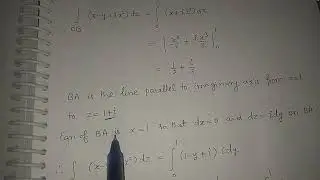 ∫_OB (x-y+ix²) dz = ∫₀¹ (x+ix²) dx
= | x²/2 + i x³/3 |₀¹
= 1/2 + i/3
BA is the line parallel to imaginary axis from z=1
to z = 1+i
Eqn of BA is x=1 so that dx=0 and dz=idy on BA
∴ ∫ (x- x²) dz = ∫₀¹ (1-y+i) idy